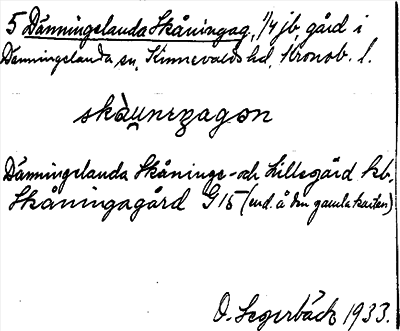 5 Dänningelanda Skåningag. 1/4 jb, gård i
Dänningelanda sn, Kinnevalds hd, Kronob. l.
skàunıŋagon
Dänningelanda Skånings- och Lillegård kb.
Skåningagård G 15 (end. å den gamla kartan)
O. Segerbäck 1933.